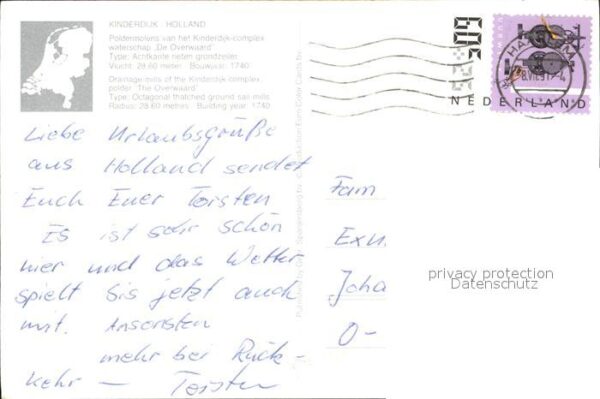 KINDERDIJK - HOLLAND
Poldermolens van het Kinderdijk-complex
waterschap „De Overwaard"
Type: Achtkante rieten grondzeiler
Vlucht: 28.60 meter Bouwjaar: 1740
Drainage-mills of the Kinderdijk-complex
polder "The Overwaard"
Type: Octagonal thatched ground sail mills
Radius: 28.60 metres Building year: 1740
60c
NEDERLAND
Liebe Urlaubsgrüße
aus Holland sendet
Euch Euer Torsten
Es ist sehr schön
hier und das Wetter
spielt bis jetzt auch
mit. Ansonsten
mehr bei Rück-
kehr — Torsten
Fam
Exn.
Joha
O-
privacy protection
Datenschutz